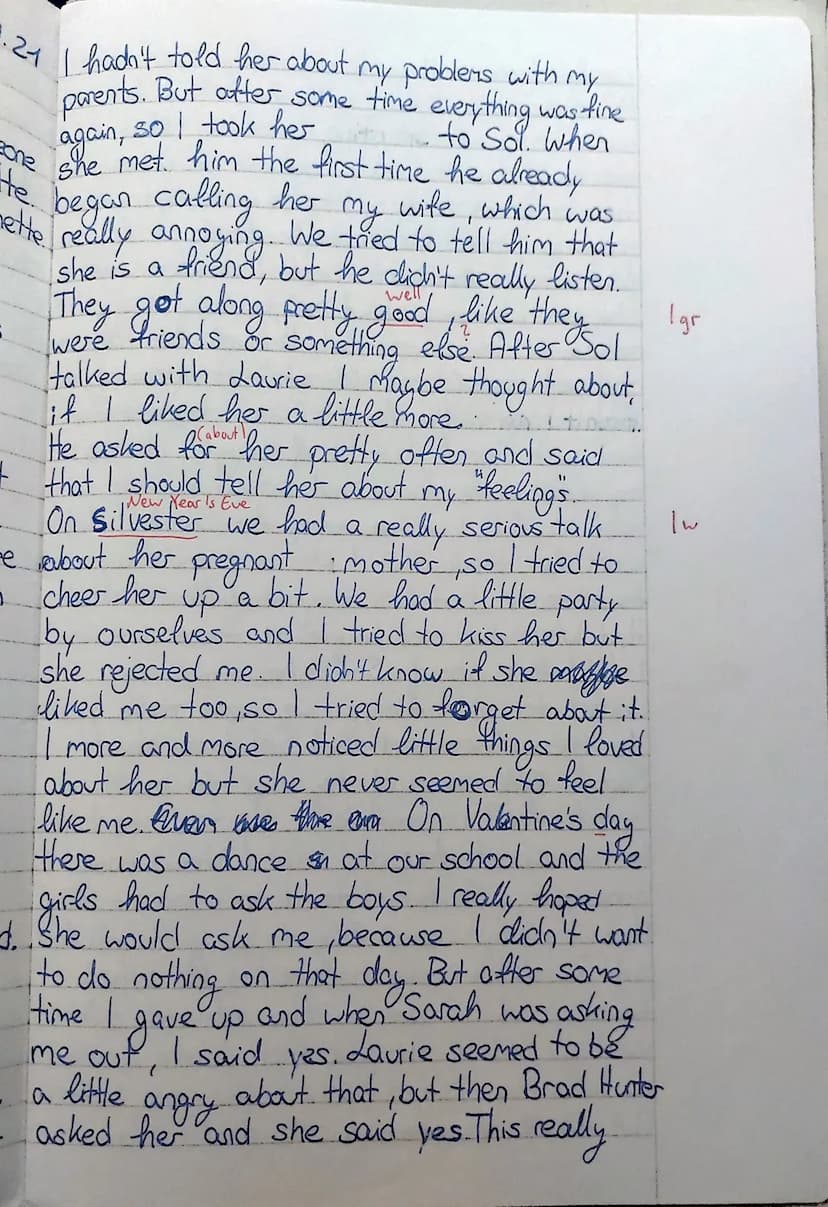 .21 I hadn't told her about my problems with my
parents. But after some time everything was fine
again, so I took her to Sol. When
eone she met him the first time he already
He. began calling her my wife, which was
nette really annoying. We tried to tell him that
she is a friend, but he didn't really listen.
well
They got along pretty good, like they 1gr
?
were friends or something else. After Sol
talked with Laurie I maybe thought about,
if I liked her a little more.
(about)
He asked for her pretty often and said
that I should tell her about my "feelings".
New Year's Eve
On Silvester we had a really serious talk 1w
e about her pregnant mother, so I tried to
cheer her up a bit. We had a little party
by ourselves and I tried to kiss her but
she rejected me. I didn't know if she
liked me too, so I tried to forget about it.
I more and more noticed little things I loved
about her but she never seemed to feel
like me. On Valentine's day
there was a dance at our school and the
girls had to ask the boys. I really hoped
d. she would ask me, because I didn't want
to do nothing on that day. But after some
time I gave up and when Sarah was asking
me out, I said yes. Laurie seemed to be
a little angry about that, but then Brad Hunter
asked her and she said yes. This really